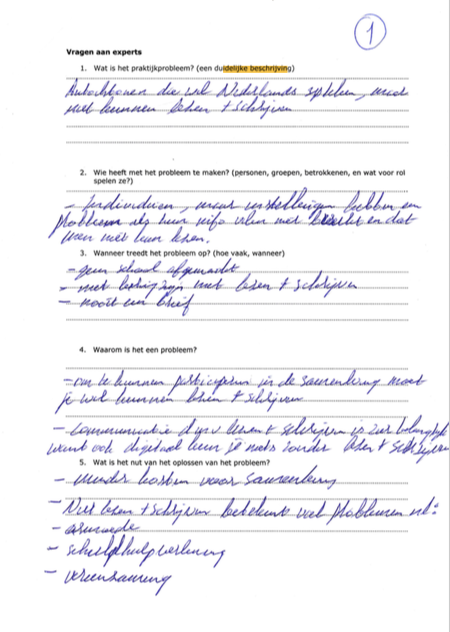 1
Vragen aan experts
1. Wat is het praktijkprobleem? (een duidelijke beschrijving)
Autochtonen die wel Nederlands spreken, maar
niet kunnen lezen + schrijven
2. Wie heeft met het probleem te maken? (personen, groepen, betrokkenen, en wat voor rol
spelen ze?)
- Individuen, maar instellingen hebben een
probleem als hun info niet en dat
men niet kan lezen.
3. Wanneer treedt het probleem op? (hoe vaak, wanneer)
- geen school afgemaakt
- niet bezig zijn met lezen + schrijven
- nooit een brief
4. Waarom is het een probleem?
- om te kunnen participeren in de samenleving moet
je wel kunnen lezen + schrijven
- communicatie d.m.v lezen + schrijven is zeer belangrijk
want ook digitaal kun je niets zonder lezen + schrijven
5. Wat is het nut van het oplossen van het probleem?
- minder kosten voor samenleving
- Niet lezen + schrijven betekent veel problemen nl:
- armoede
- schuldhulpverlening
- vereenzaming